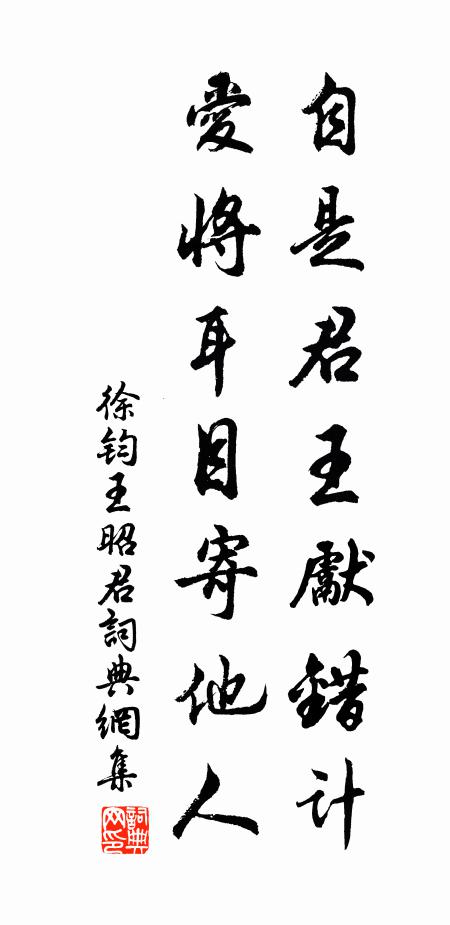 自是君王獻錯計
愛將耳目寄他人
徐鈞王昭君詞典網集
詞典網印